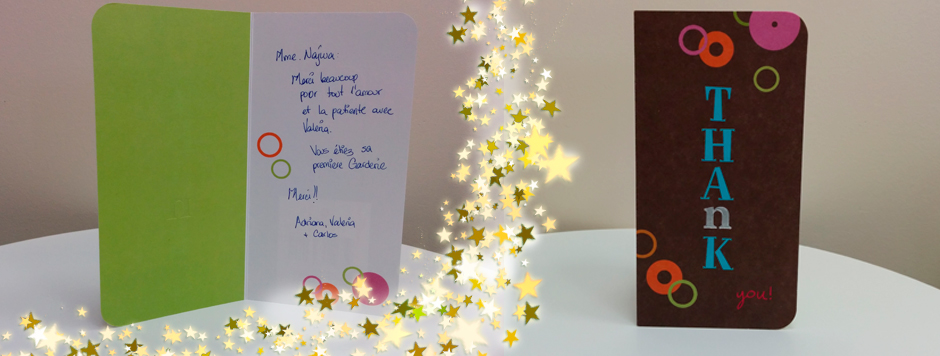 Mme. Najwa:
Merci beaucoup
pour tout l'amour
et la patiente avec
Valeria.
Vous étiez sa
premiere Garderie
Merci!!
Adriana, Valeria
+ Carlos
THAnK
you!